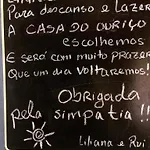 Para descanso e lazer
A CASA DO OURIÇO
escolhemos
E será com muito prazer
Que um dia voltaremos!
Obrigada
pela simpatia!!
Liliana e Rui